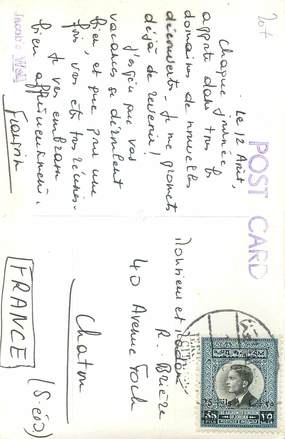 Le 12 Août,
Chaque journée
apporte dans tous les
domaines de nouvelles
découvertes. Je me promets
déjà de revenir!
J'espère que vos
vacances se déroulent
bien, et que pour une
fois vous êtes tous réunis.
Je vous embrasse
bien affectueusement.
POST CARD
Monsieur et Madame
R. Brière
40 Avenue Foch
Chatou
(S et O)
FRANCE